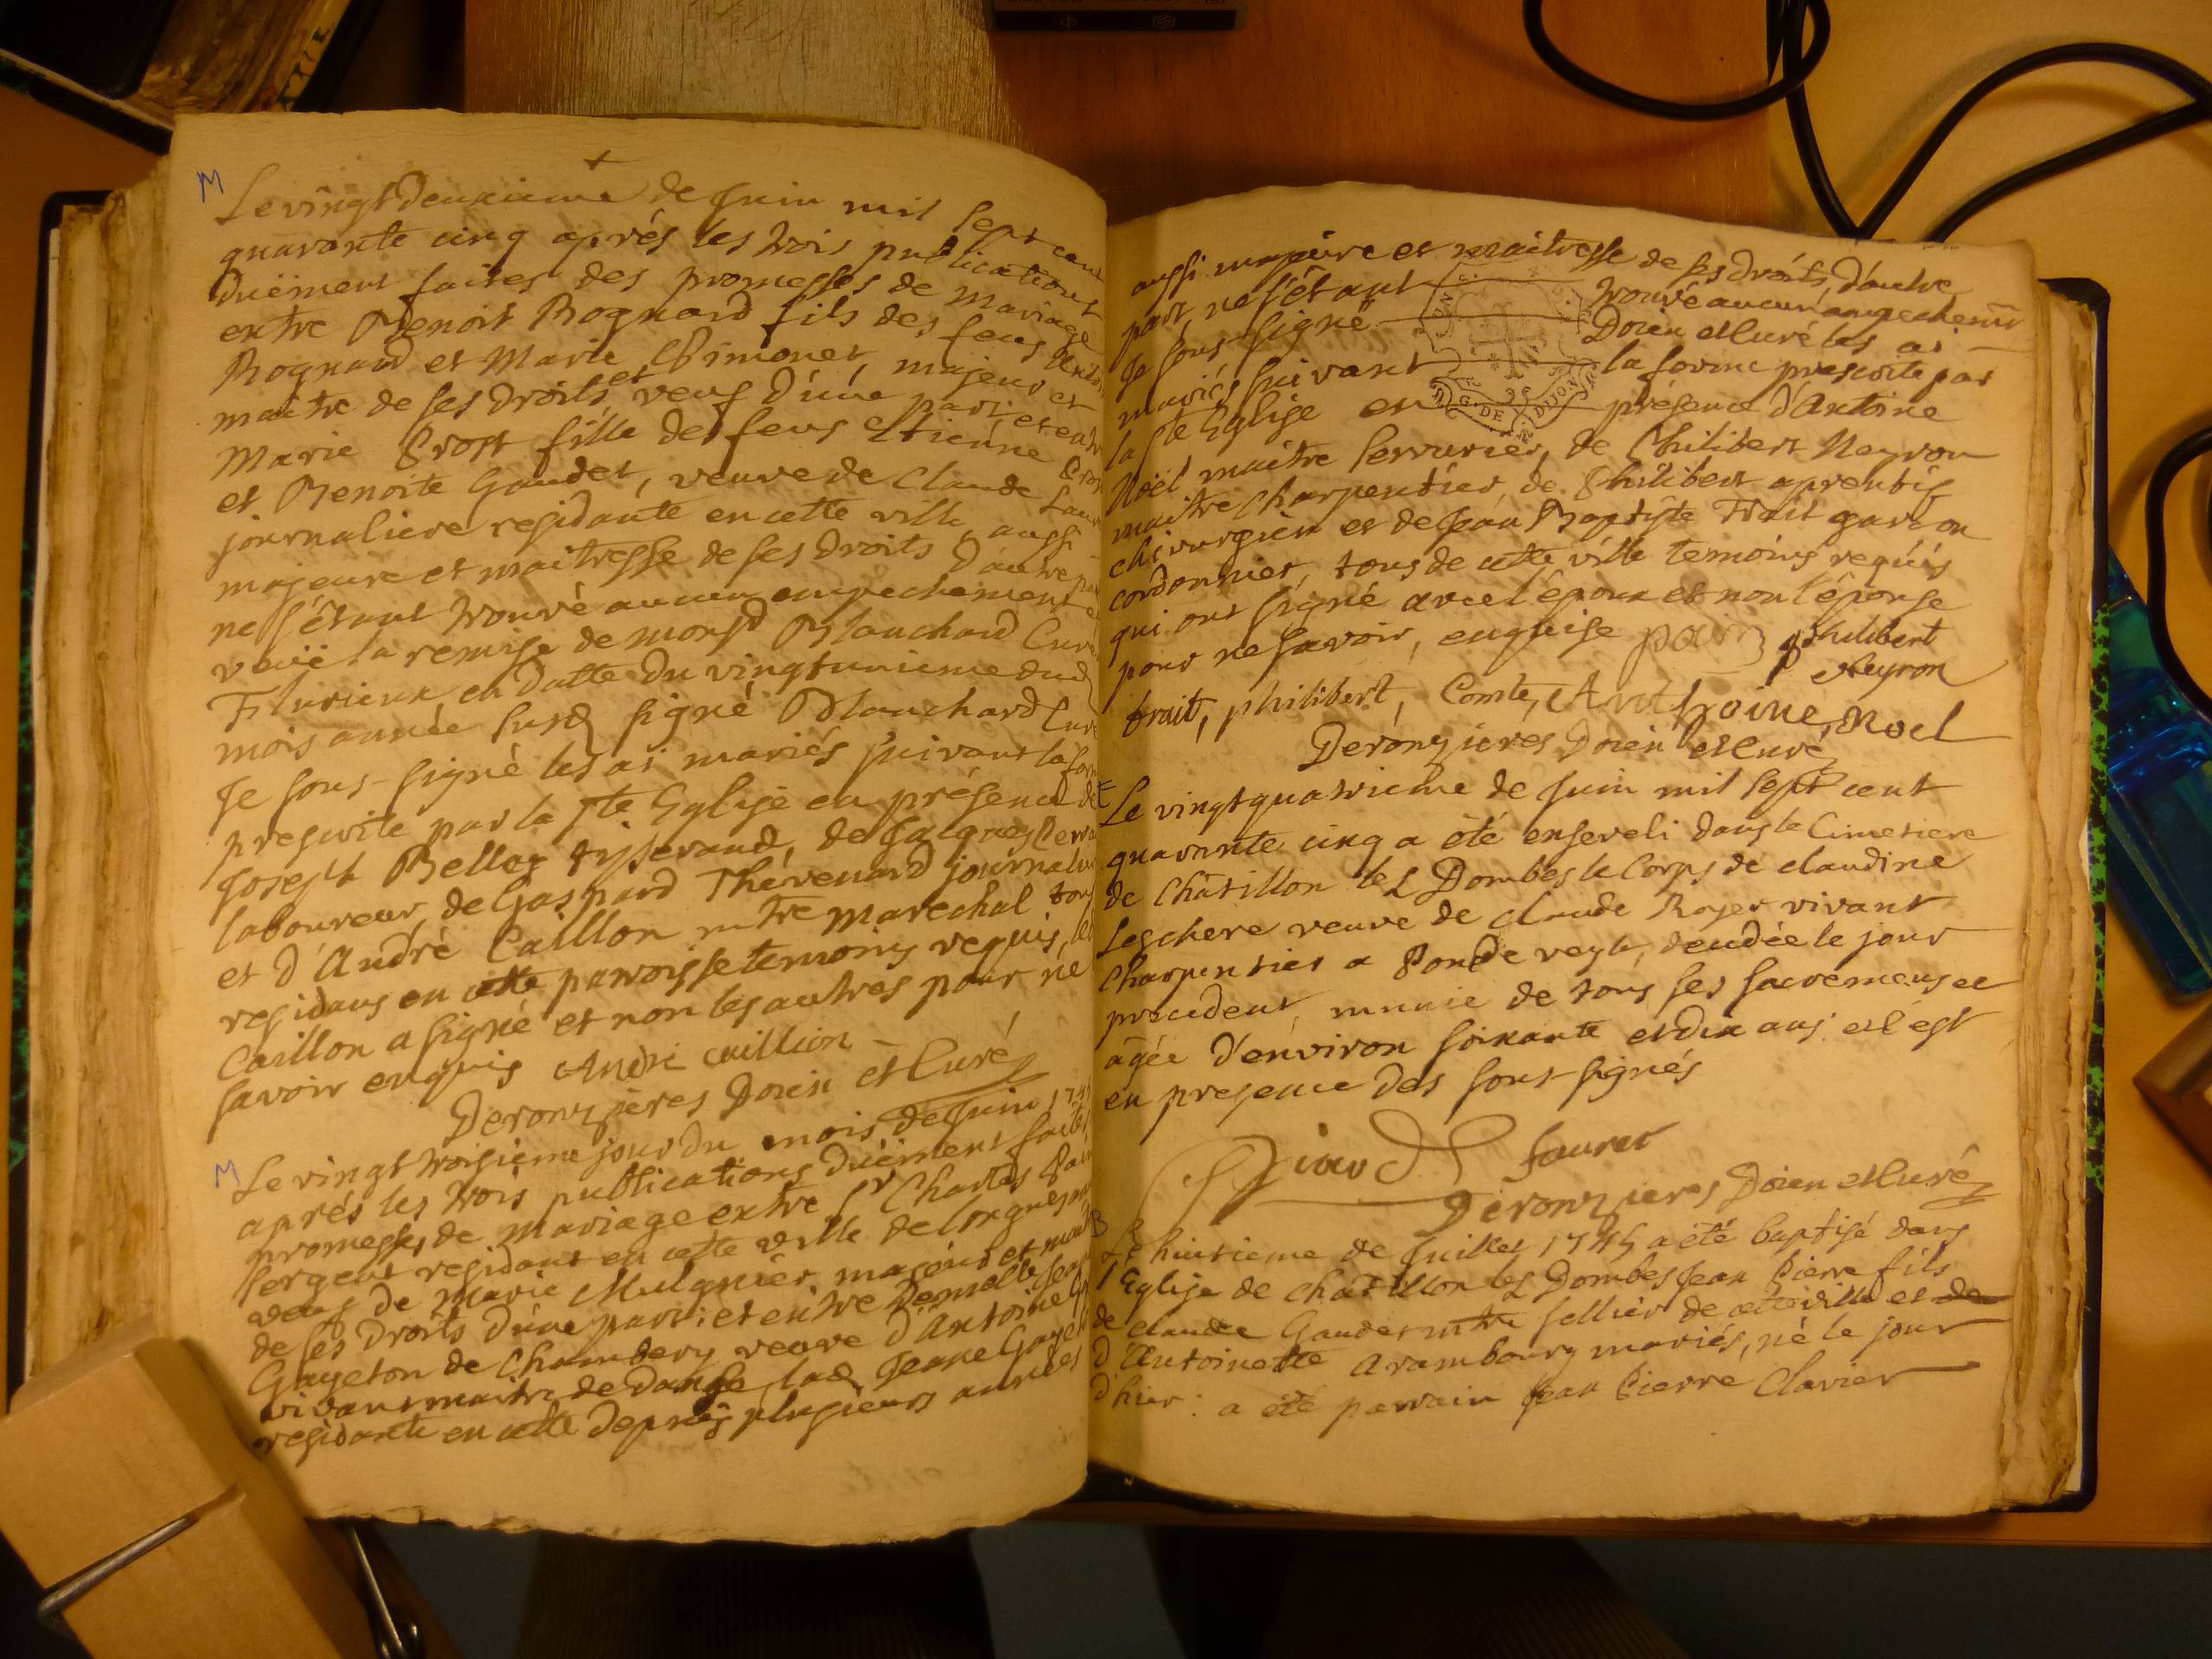 M
Le vingt deuxieme de Juin mil sept cent
quarante cinq aprés les trois publications
düëment faites des promesses de mariage
entre Benoit Bognard fils des feus
Bognard et Marie Pimonet, majeur et
maitre de ses droits et veuf d'une part: et entre
Marie Prost fille des feus Etienne Prost
et Benoite Gaudet, veuve de Claude
journaliere residante en cette ville, aussi
majeure et maitresse de ses droits d'autre part
ne s'étant trouvé aucun empechement et
vëuë la remise de monsr Blanchard Curé
Flurieux en datte du vingtunieme dud
mois année susd signé Blanchard Curé
Je sous-signé les ai mariés suivant la forme
prescrite par la Ste Eglise en présence de
Joseph Belloz tisserand, de Jacques
laboureur, de Gaspard Thévenard journalier
et d'André Caillon mtre marechal tous
residans en cette paroisse temoins requis, led
Caillon a signé et non les autres pour ne
savoir enquis André Caillion
Deronzieres Doien et Curé
M
Le vingt troisieme jour du mois de Juin 1745
aprés les trois publications düëment faites
promesses de mariage entre Sr Charles Pain
sergent residant en cette ville de
veuf de Marie Mulgnier, majeur et maitre
de ses droits d'une part: et entre Demoille Jeane
Gayeton de Chambery veuve d'Antoine
vivant maitre de Danse, lad Jeane Gayeton
residante en cette depuis plusieurs années
aussi majeure et maitresse de ses droits, d'autre
part, ne s'étant trouvé aucun ampechemt
Je sous signé Doien et Curé les ai
mariés suivant la forme prescrite par
la Ste Eglise en présence d'Antoine
G. DE DIJON
Noël maitre serrurier, de Philibert Neyron
maitre Charpentier, de Philibert aprentis
chirurgien et de Jean Baptiste Trait garcon
cordonnier, tous de cette ville temoins requis
qui ont signé avec l'époux et non l'épouse
pour ne savoir, enquise pain philibert
Neyron
trait, philibert, Comte, Anthoine Noel
Deronzieres Doien et Curé
E
Le vingt quatrieme de Juin mil sept cent
quarante cinq a été enseveli dans le Cimetiere
de Châtillon les Dombes le Corps de claudine
Leschere veuve de claude Royer vivant
Charpentier a Pondeveyle, decedée le jour
precedent, munie de tous ses sacremens et
agée d'environ soixante et dix ans. et c'est
en presence des sous-signés
Giaud Fauret
Deronzieres Doien et Curé
B
Le huitieme de Juillet 1745 a été baptisé dans
l'Eglise de Chatillon les Dombes Jean Pierre fils
de claude Gaudet mtre sellier de cette ville et de
d'Antoinette Arambourg mariés, né le jour
d'hier: a été parrain Jean Pierre Clavier